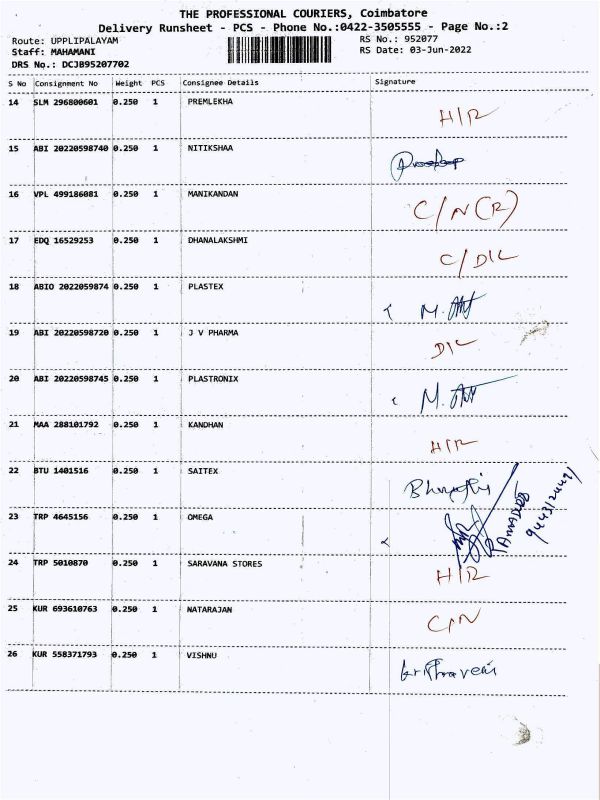 THE PROFESSIONAL COURIERS, Coimbatore
Delivery Runsheet - PCS - Phone No.:0422-3505555 - Page No.:2
Route: UPPLIPALAYAM RS No.: 952077
Staff: MAHAMANI RS Date: 03-Jun-2022
DRS No.: DCJB95207702
S No Consignment No Weight PCS Consignee Details Signature
14 SLM 296800601 0.250 1 PREMLEKHA H/R
15 ABI 20220598740 0.250 1 NITIKSHAA
16 VPL 499186081 0.250 1 MANIKANDAN C/N(R)
17 EDQ 16529253 0.250 1 DHANALAKSHMI C/DIL
18 ABIO 2022059874 0.250 1 PLASTEX M.
19 ABI 20220598720 0.250 1 J V PHARMA DIL
20 ABI 20220598745 0.250 1 PLASTRONIX M.
21 MAA 288101792 0.250 1 KANDHAN H/R
22 BTU 1401516 0.250 1 SAITEX
23 TRP 4645156 0.250 1 OMEGA
24 TRP 5010870 0.250 1 SARAVANA STORES H/R
25 KUR 693610763 0.250 1 NATARAJAN C/N
26 KUR 558371793 0.250 1 VISHNU